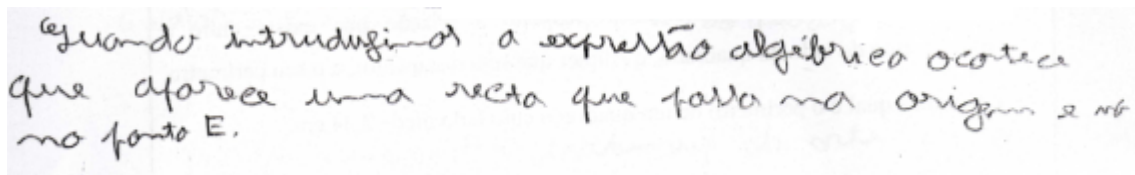 Quando introduzimos a expressão algébrica ocontece
que aparece uma recta que passa na origem e
no ponto E.